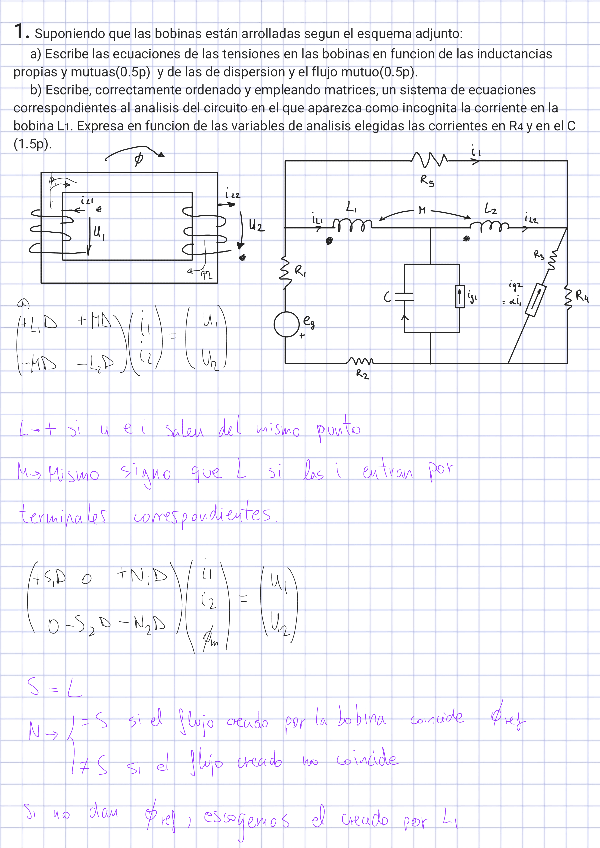 1. Suponiendo que las bobinas están arrolladas segun el esquema adjunto:
a) Escribe las ecuaciones de las tensiones en las bobinas en funcion de las inductancias
propias y mutuas(0.5p) y de las de dispersion y el flujo mutuo(0.5p).
b) Escribe, correctamente ordenado y empleando matrices, un sistema de ecuaciones
correspondientes al analisis del circuito en el que aparezca como incognita la corriente en la
bobina L1. Expresa en funcion de las variables de analisis elegidas las corrientes en R4 y en el C
(1.5p).
ϕ
i1
R5
iL1
iL2
U1
U2
iL1
L1
M
L2
iL2
R1
C
ig1
R3
ig2
= αi1
R4
eg
+
R2
a)
+L1D +MD i1 = U1
-MD -L2D i2 U2
L→+ si u e i salen del mismo punto
M→ Mismo signo que L si las i entran por
terminales correspondientes.
+S1D 0 +N1D i1 U1
i2 =
0 -S2D -N2D ϕm U2
S = L
N → = S si el flujo creado por la bobina coincide ϕref
≠ S si el flujo creado no coincide
Si no dan ϕref, escogemos el creado por L1